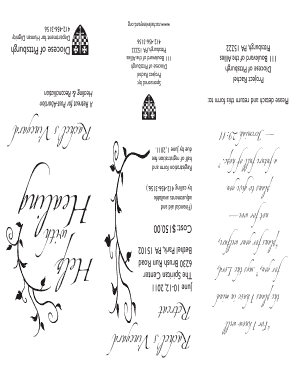 "For I know well
the plans I have in mind
for you," says the Lord,
"plans for your welfare,
not for woe —
plans to give you
a future full of hope."
— Jeremiah 29:11
Please detach and return this form to:
Rachel Project
Diocese of Pittsburgh
111 Boulevard of the Allies
Pittsburgh PA 15222
Rachel's Vineyard
Retreat
June 10-12, 2011
The Spiritan Center
6230 Brush Run Road
Bethel Park, PA 15102
Cost: $150.00
(Financial aid
adjustments available
by calling 412-456-3156.)
Registration form and
half of registration fee
due by June 1, 2011.
Sponsored by
Rachel Project
Diocese of Pittsburgh
111 Boulevard of the Allies
Pittsburgh PA 15222
412-456-3156
www.rachelsvineyard.org
Help
with
Healing
Rachel's Vineyard
A Retreat for Post-Abortion
Healing & Reconciliation
Diocese of Pittsburgh
Department for Human Dignity
412-456-3156